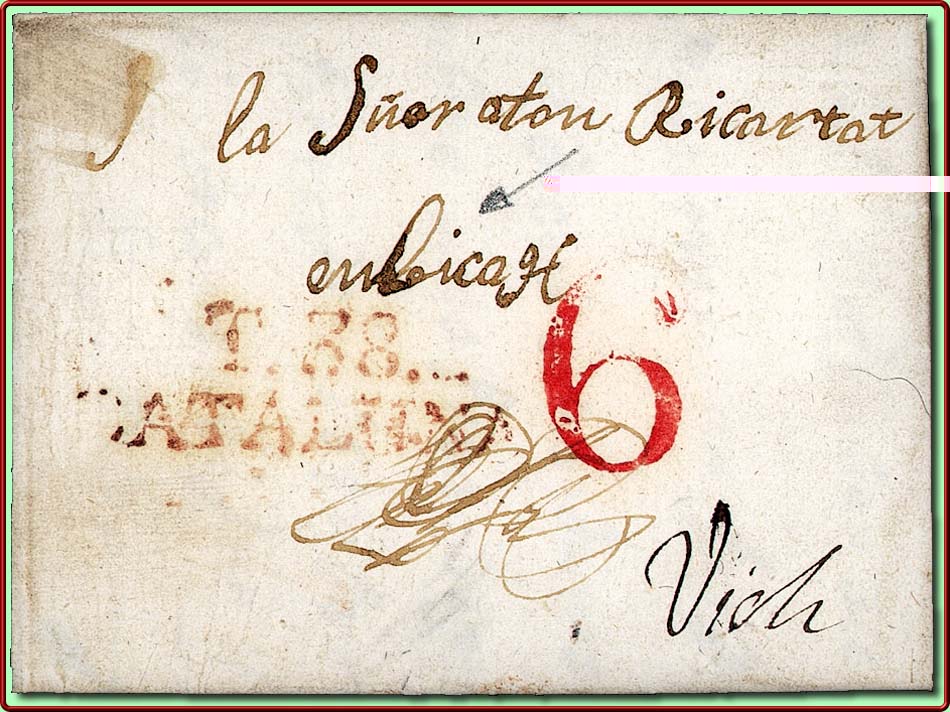 la Sñor aton Ricartat
enbicaH
T. 38.
CATALUÑA
6
Vich